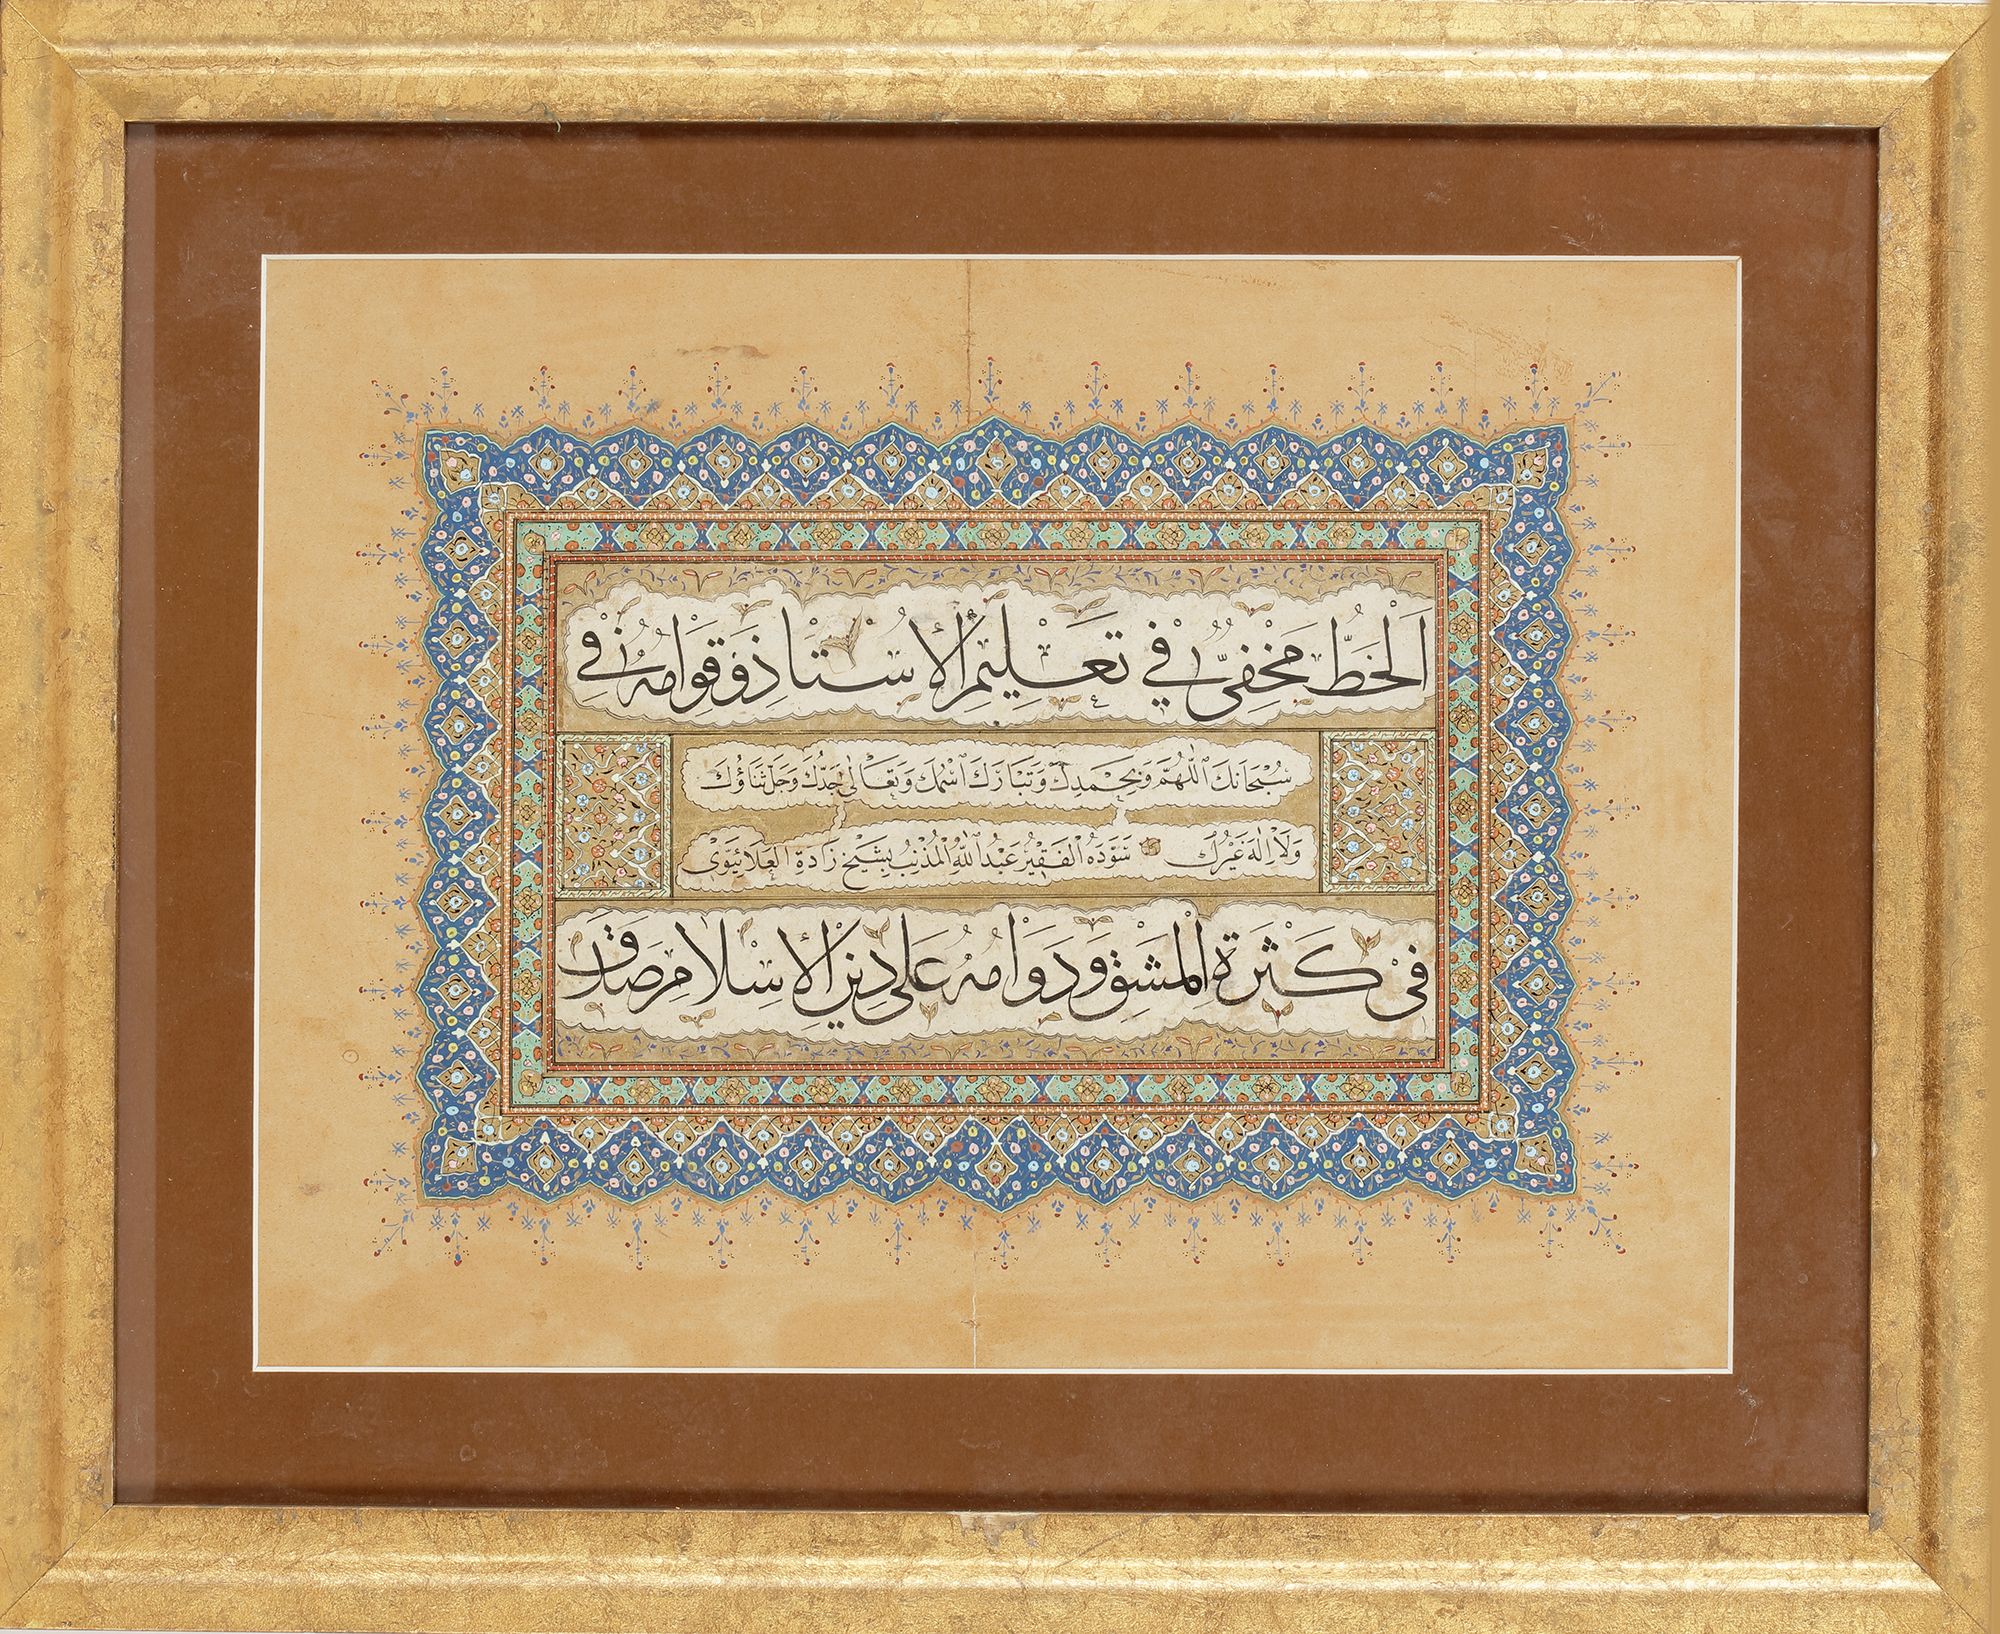 اَلْخَطُّ مَخْفِىٌّ فِي تَعْلِيمِ الْأُسْتَاذِ وَقِوَامُهُ فِي
سُبْحَانَكَ اَللّٰهُمَّ وَبِحَمْدِكَ وَتَبَارَكَ اسْمُكَ وَتَعَالٰى جَدُّكَ وَجَلَّ ثَنَاؤُكَ
وَلَا اِلٰهَ غَيْرُكَ سَوَّدَهُ الْفَقِيرُ عَبْدُ اللّٰهِ الْمُذْنِبُ بِشَيْخْ زَادَهِ الْعَلَائِيَّوِى
فِى كَثْرَةِ الْمَشْقِ وَدَوَامُهُ عَلٰى دِينِ الْإِسْلَامِ صَدَقَ